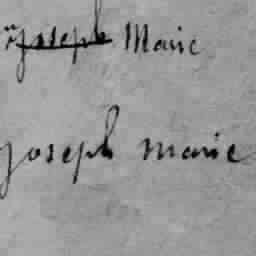 Joseph Marie
joseph marie